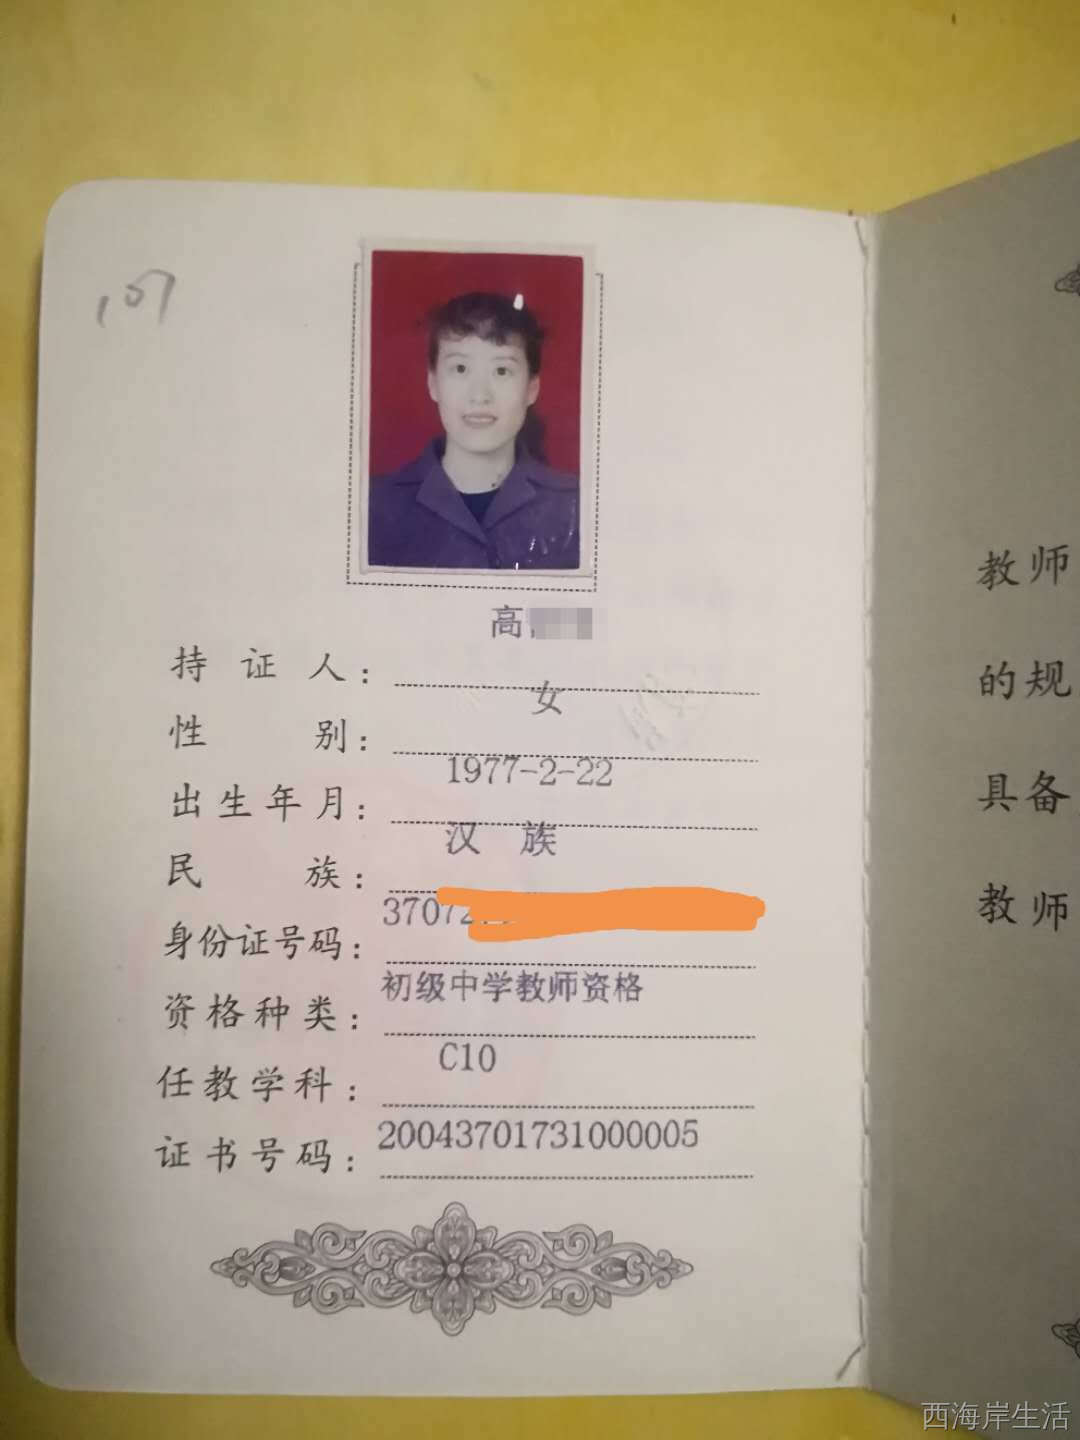 107
高
持证人：
女
性别：
1977-2-22
出生年月：
汉 族
民族：
3707
身份证号码：
初级中学教师资格
资格种类：
C10
任教学科：
20043701731000005
证书号码：
教师
的规
具备
教师
西海岸生活